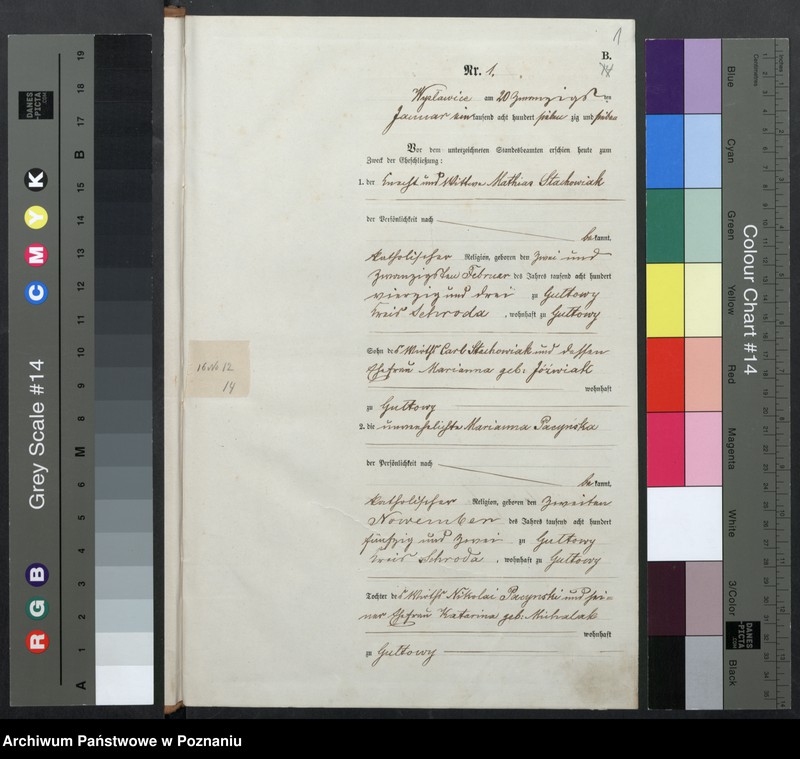 1
B.
Nr. 1.
Wysławice am 20 Zwanzigsten
Januar ein tausend acht hundert sieben zig und sieben
Vor dem unterzeichneten Standesbeamten erschien heute zum
Zweck der Eheschließung:
1. der Knecht und Wittwe Mathias Stachowiak
der Persönlichkeit nach
be kannt,
katholischer Religion, geboren den Zwei und
Zwanzigsten Februar des Jahres tausend acht hundert
vierzig und drei zu Gultowy
Kreis Schroda, wohnhaft zu Gultowy
Sohn des Wirths Carl Stachowiak und dessen
Ehefrau Marianna geb. Jóźwiak
wohnhaft
zu Gultowy
2. die unverehelichte Marianna Pacyńska
der Persönlichkeit nach
be kannt,
katholischer Religion, geboren den Zweiten
November des Jahres tausend acht hundert
fünfzig und Zwei zu Gultowy
Kreis Schroda, wohnhaft zu Gultowy
Tochter des Wirths Nikolai Pacynski und sei-
ner Ehefrau Katarina geb. Michalak
wohnhaft
zu Gultowy
12
14
Grey Scale #14
R G B
C M Y K
A 1 2 3 4 5 6 M 8 9 10 11 12 13 14 15 B 17 18 19
DANES
PICTA
.COM
Colour Chart #14
Blue
Cyan
Green
Yellow
Red
Magenta
White
3/Color
Black
Centimetres
Inches
DANES
PICTA
.COM
Archiwum Państwowe w Poznaniu